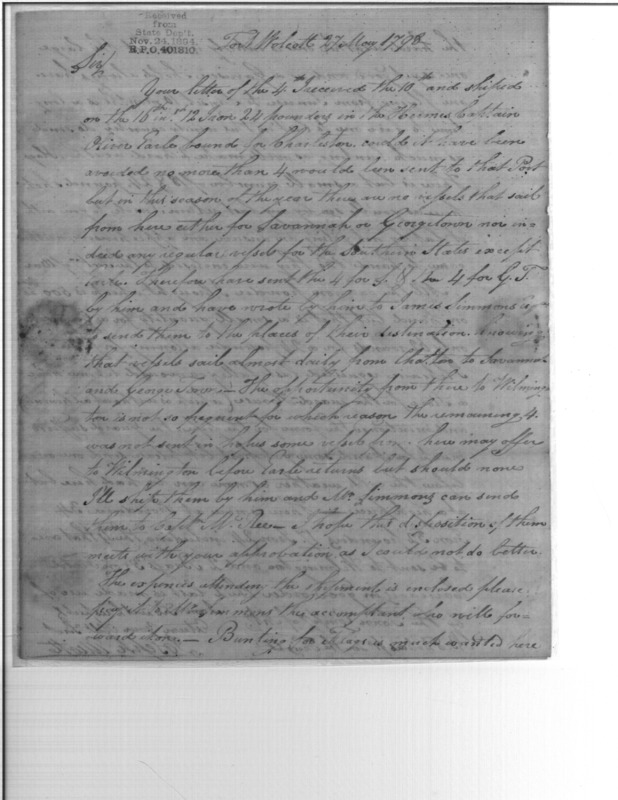 Received
from
State Dep't.
Nov. 24, 1894.
R.P.O. 401810.
Fort Wolcott 27 May 1798
Sir,
Your letter of the 4th received the 10th and shiped
on the 16th 12 Iron 24 pounders in the Captain
Oliver Earle bound for Charleston. could it have been
avoided no more than 4 would been sent to that Port
but in this season of the year there are no vessels that sail
from here either for Savannah or Georgetown nor in=
deed any regular vessels for the Southern States except
Therefore have sent the 4 for 4 for G. T.
by him and have wrote by him to James Simmons
to send them to the places of their destination. knowing
that vessels sail almost daily from Chas.ton to Savannah
and George Town — The opportunity from there to Wilming
ton is not so frequent for which reason the remaining 4
was not sent in hopes some vessel from here may offer
to Wilmington before Earle returns but should none
I'll ship them by him and Mr. Simmons can send
them to Mc Ree — I hope this disposition of them
meets with your approbation as I could not do better.
The expences attending the shipment is inclosed please
the accomptant who will for=
ward — Bunting for is much wanted here